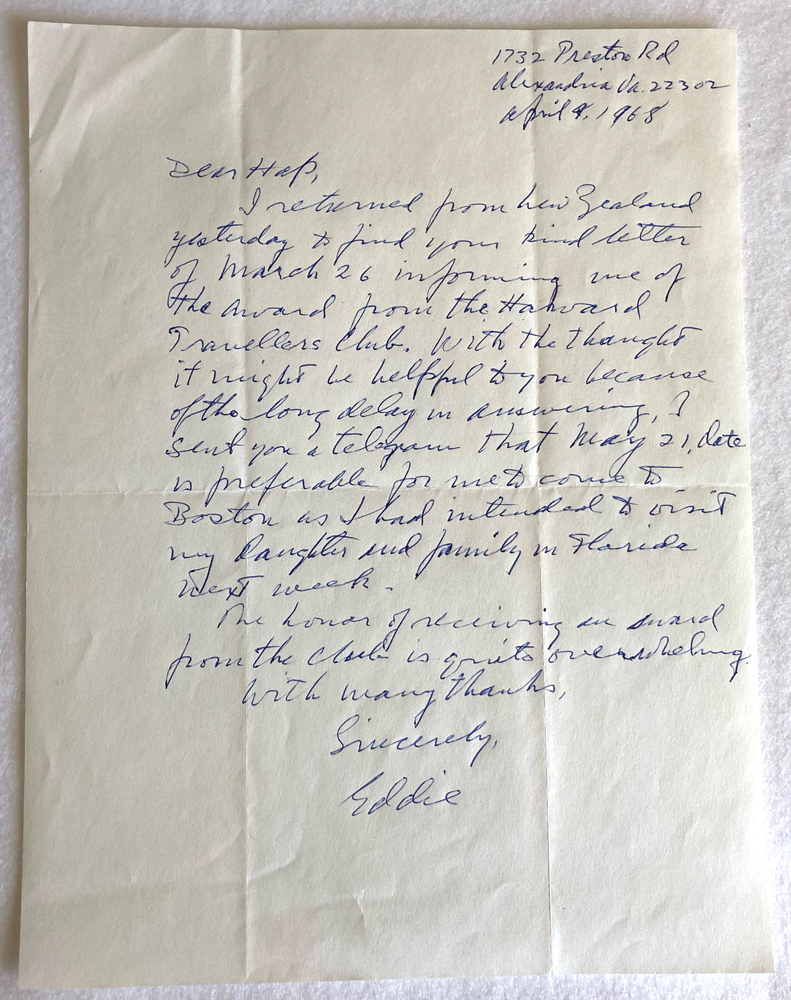 1732 Preston Rd
Alexandria Va. 22302
April 9, 1968
Dear Hap,
I returned from New Zealand
yesterday to find your kind letter
of March 26 informing me of
the award from the Harvard
Travellers Club. With the thought
it might be helpful to you because
of the long delay in answering, I
sent you a telegram that May 21, date
is preferable for me to come to
Boston as I had intended to visit
my daughter and family in Florida
next week.
The honor of receiving an award
from the club is quite overwhelming.
With many thanks,
Sincerely,
Eddie